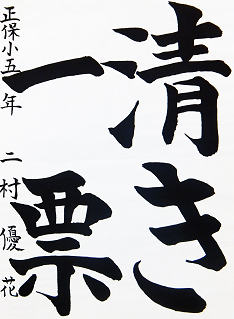 清き
一票
正保小五年 二村優花